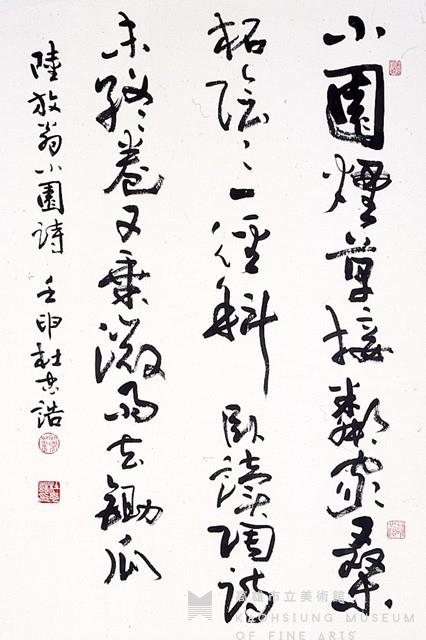 小園煙草接鄰家桑
柘陰〻一徑斜臥讀陶詩
未終卷又乘微雨去鋤瓜
陸放翁小園詩 壬申杜忠誥
高雄市立美術館
KAOHSIUNG MUSEUM
OF FINE ARTS